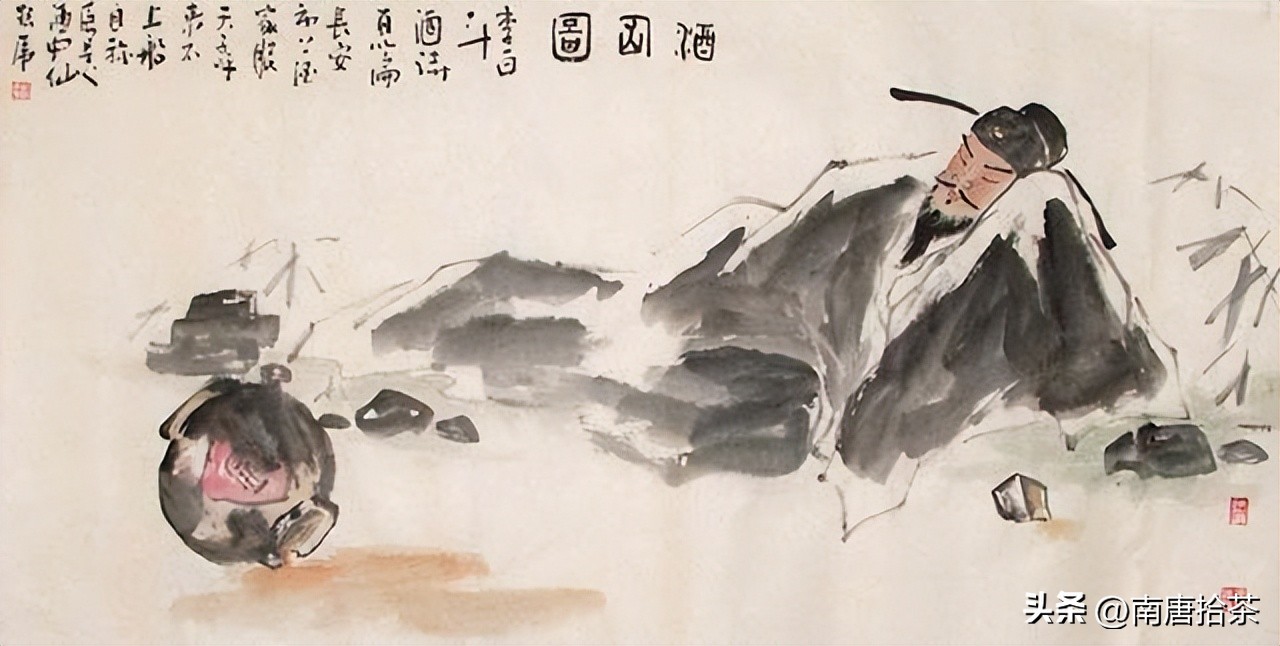 酒圖
李白
斗
酒诗
百篇
長安
市上酒
家眠
天子呼
来不
上船
自称
臣是
酒中仙
酒
头条 @南唐拾茶